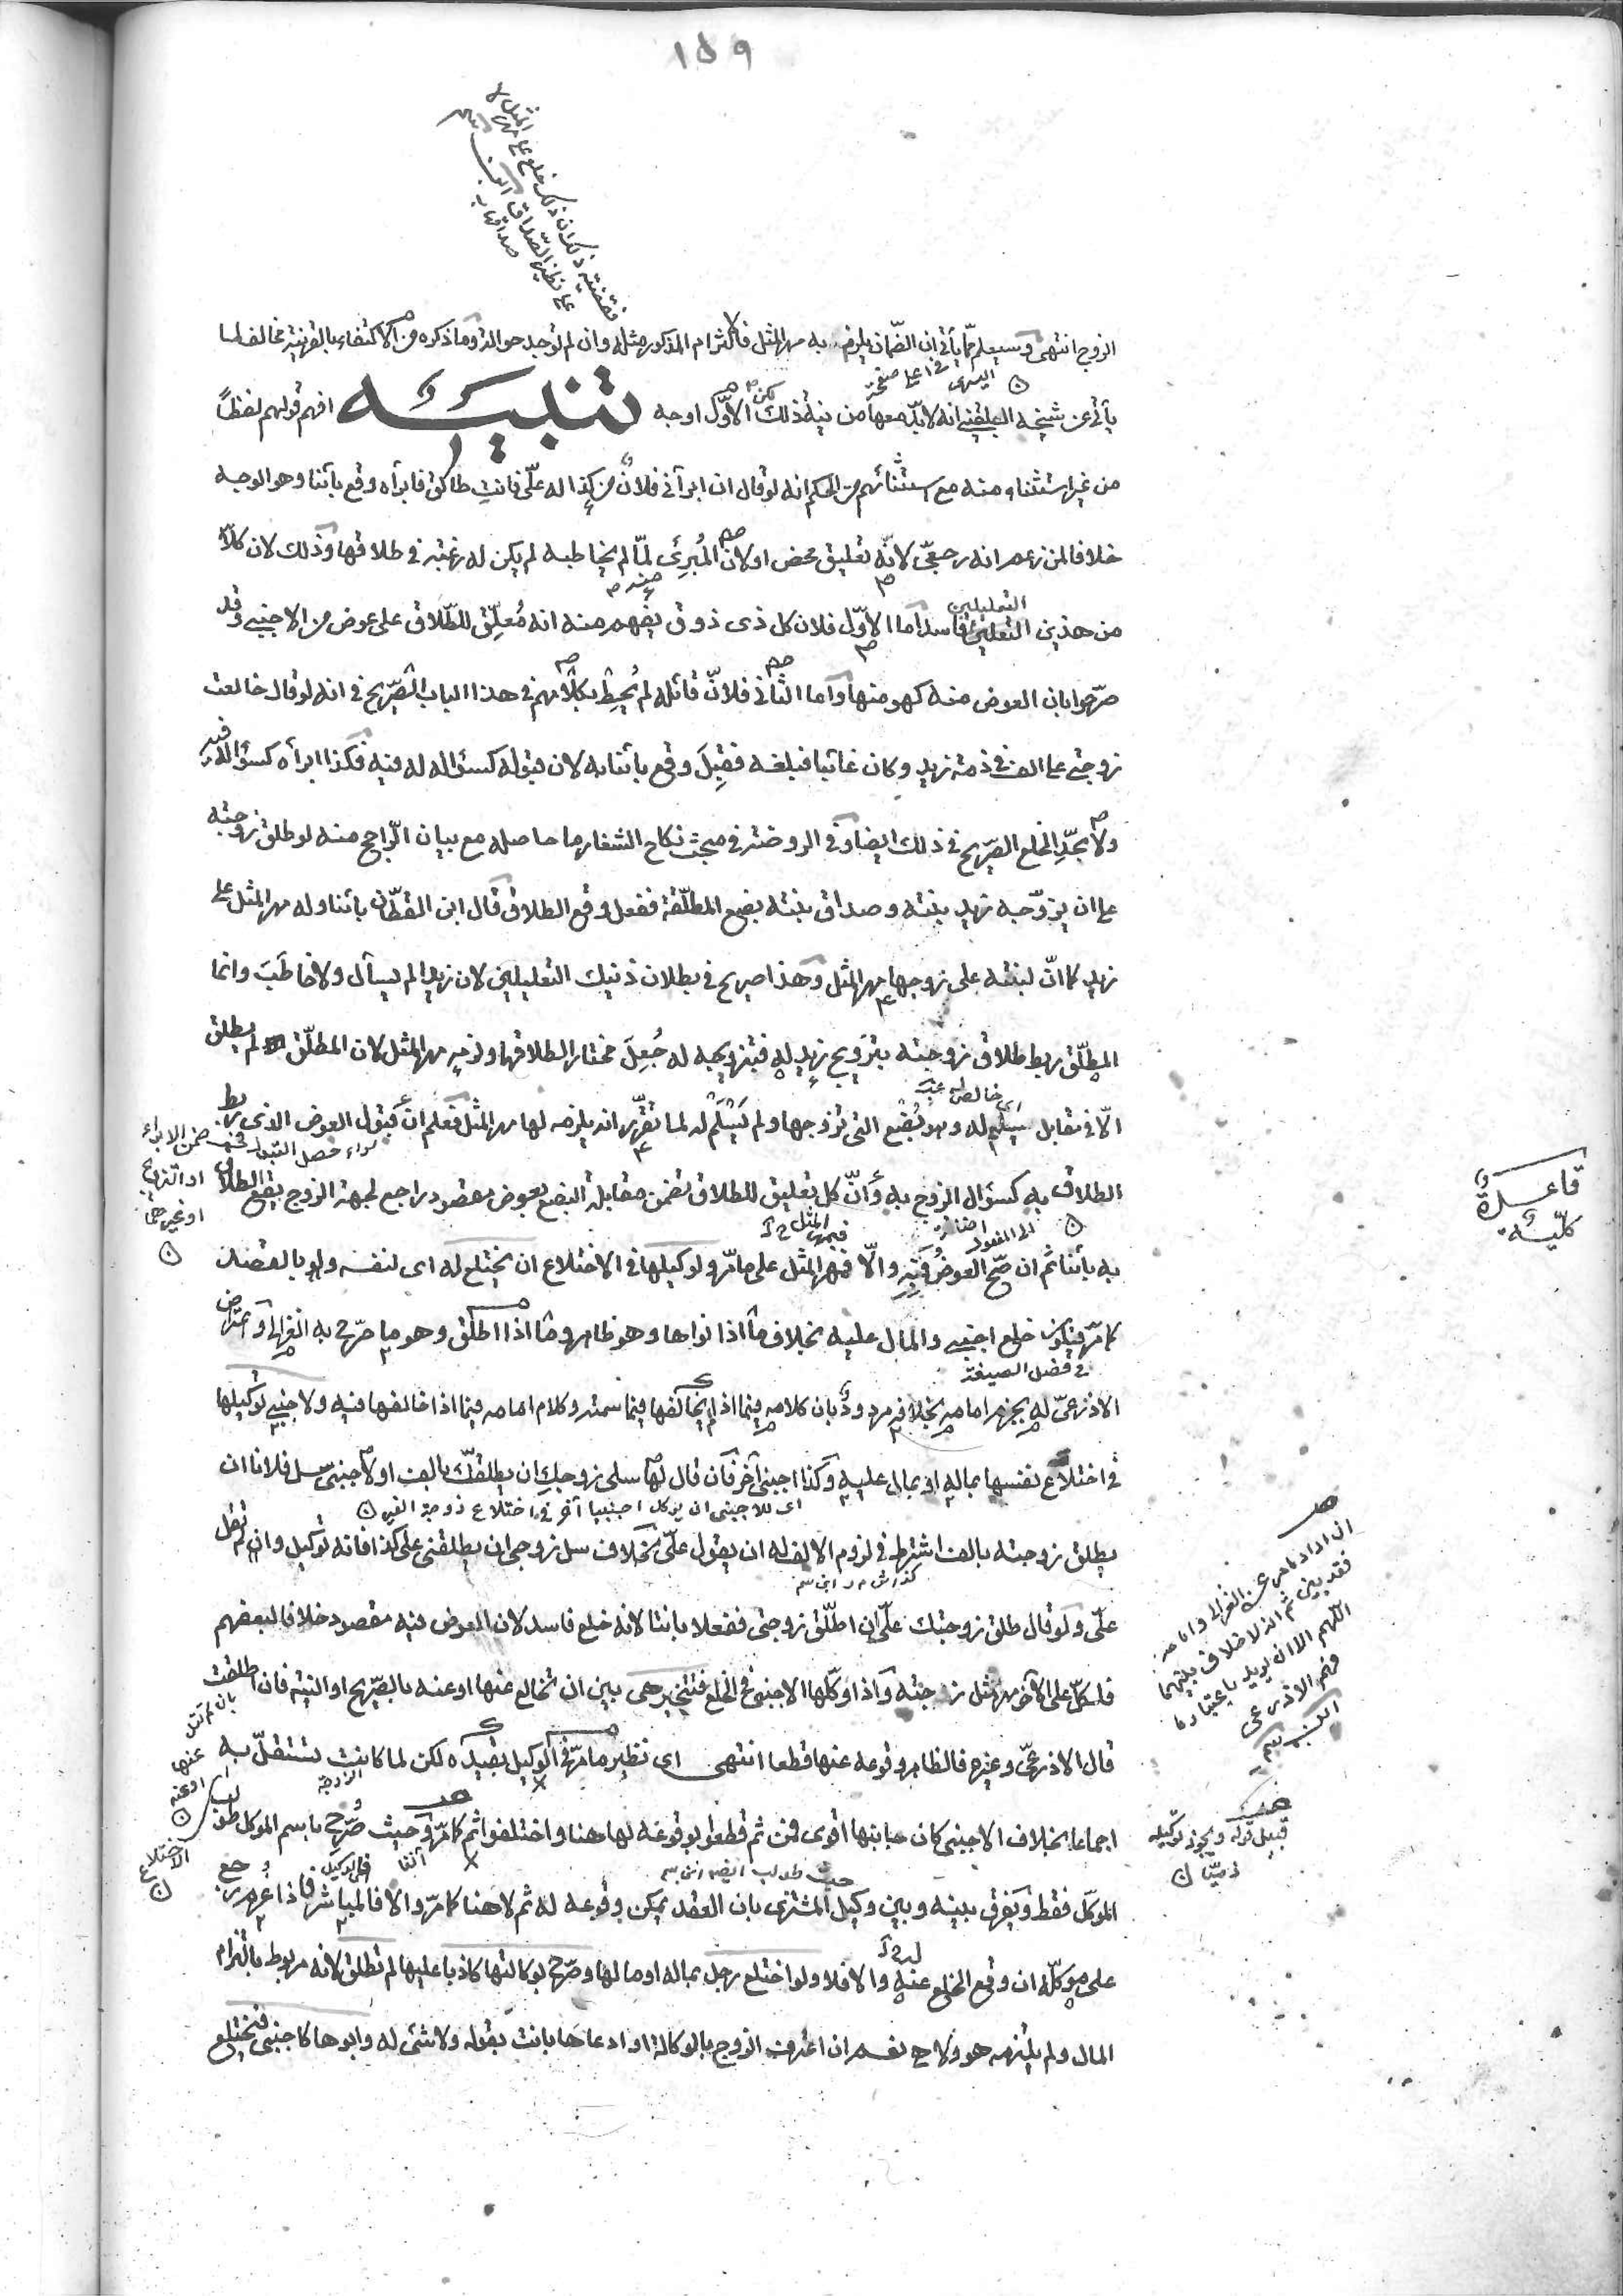 ١٥٩
الزوج انتهى وسيعلم مما يأتي ان الضمان يلزم به مهر المثل فالالتزام المذكور مثله وان لم توجد حوالة وما ذكره من الاكتفاء بالقرينة مخالف لما
اليسرى في اعلى صفحة
يأتي عن شيخه البلقيني انه لا بد معها من نية ذلك لكن الاول اوجه تنبيه افهم قولهم لفظاً
من غير استثناء منه مع استثنائهم من الحكم انه لو قال ان ابرأني فلان من كذا له علّي فانتِ طالق فابرأه وقع بائنا وهو الوجه
خلافا لمن زعم انه رجعيّ لانّه تعليق محض او لان المُبرِئ لمّا لم يخاطبه لم يكن له رغبة في طلاقها وذلك لان كلاً
التعليلين
من هذين فاسد اما الاوّل فلان كل ذى ذوق يفهم منه انه مُعلِّق للطّلاق على عوض من الاجنبي وقد
صرّحوا بان العوض منه كهو منها واما الثاني فلانّ قائله لم يُحِط بكلامهم في هذا الباب الصّريح في انه لو قال خالعت
زوجتي على الف في ذمة زيد وكان غائبا فبلغه فقَبِلَ وقع بائنا به لان قبوله كسؤاله له فيه فكذا ابرأه كسؤاله فيه
ولا يجدّد الخلع الصّريح في ذلك ايضا وفي الروضة في مبحث نكاح الشغار ما حاصله مع بيان الرّاجح منه لو طلق زوجته
على ان يزوّجه زيد بنته وصداق بنته بضع المطلّقة ففعل وقع الطلاق قال ابن القطّان بائنا وله مهر المثل على
زيد كما انّ لبنته على زوجها مهر المثل وهذا صريح في بطلان ذينك التعليلين لان زيدا لم يسأل ولا خاطَبَ وانما
المطلّق ربط طلاق زوجته بتزويج زيدٍ له فبتزويجه له جُعِلَ مختارا لطلاقها ولزمه مهر المثل لان المطلّق لم يطلق
الّا في مقابل سلم له وهو بُضْع التي تزوجها ولم يَسْلَمْ له لما تقرّر انه يلزمه لها مهر المثل فعلم ان قبول العوض الذى ربط
سواء حصل القبول في ضمن الابراء
او التزويج
او غيرهما
الطلاق به كسؤال الزوج به وأنّ كل تعليق للطلاق تضمن مقابلة البضع بعوض مقصود راجع لجهة الزوج يقع الطلاق
قاعدة
كليّة
به بائنا ثم ان صحّ العوض وقع به والّا فبمهر المثل على ما مرّ ولوكيلها في الاختلاع ان يختلع له اى لنفسه ولو بالقصد
كما مرّ فيكون خلع اجنبي والمال عليه بخلاف ما اذا نواها وهو ظاهر وما اذا اطلق وهو ما صرّح به الغزالي واعتراض
في فصل الصيغة
الاذرعيّ له بجزم امامه بخلافه مردود بان كلامه فيما اذا لم يخالفها فيما سمته وكلام امامه فيما اذا خالفها فيه ولاجنبي توكيلها
في اختلاع نفسها بماله او بمال عليه وكذا اجنبي آخر فان قال لها سلى زوجكِ ان يطلقكِ بالف او لاجنبيّ سل فلانا ان
اى للاجنبى ان يوكل اجنبيا آخر في اختلاع زوجة الغير
يطلق زوجته بالف اشترط في لزوم الالف له ان يقول علىّ بخلاف سل زوجى ان يطلقنى على كذا فانه توكيل وان لم تقل
علىّ ولو قال طلق زوجتك علىّ ان اطلّق زوجتي ففعلا بانتا لانه خلع فاسد لان العوض فيه مقصود خلافا لبعضهم
فلكلّ على الآخر مهر مثل زوجته واذا وكّلها الاجنبي في الخلع فتتخير هى بين ان تخالع عنها او عنه بالصّريح او النيّة فان اطلقت
بان لم تنو
عنها
او عنه
قال الاذرعيّ وغيره فالظاهر وقوعه عنها قطعا انتهى اى نظير ما مرّ في الوكيل بقيده لكن لما كانت تستقلّ به
اجماعا بخلاف الاجنبى كان جانبها اقوى فمن ثم قطعوا بوقوعه لها هنا واختلفوا ثم كما مرّ وحيث صُرّح باسم الموكل طولب
الموكّل فقط ويفرّق بينه وبين وكيل المشترى بان العقد يمكن وقوعه له ثم لا هنا كما مرّ والا فالمباشر فاذا غرم رجع
على موكّله ان وقع الخلع عنه والا فلا ولو اختلع رجل بماله او مالها وصرّح بوكالتها كاذبا عليها لم تطلق لانه مربوط بالتزام
المال ولم يلتزمه هو ولا هى نعم ان اعترف الزوج بالوكالة او ادعاها بانت بقوله ولا شئ له وابوها كاجنبى فيختلع
قبيل قوله ويجوز توكيله
ذميّا